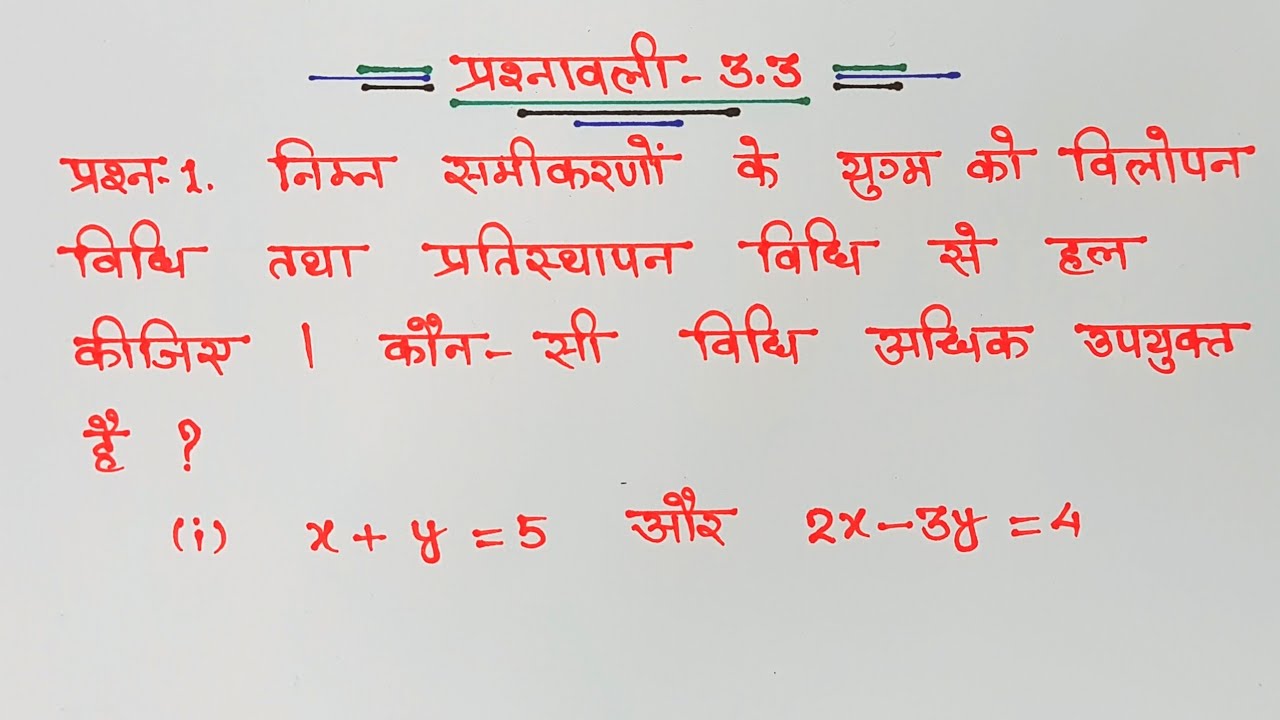 प्रश्नावली - 3.3
प्रश्न-1. निम्न समीकरणों के युग्म को विलोपन
विधि तथा प्रतिस्थापन विधि से हल
कीजिए । कौन-सी विधि अधिक उपयुक्त
है ?
(i) x + y = 5 और 2x - 3y = 4